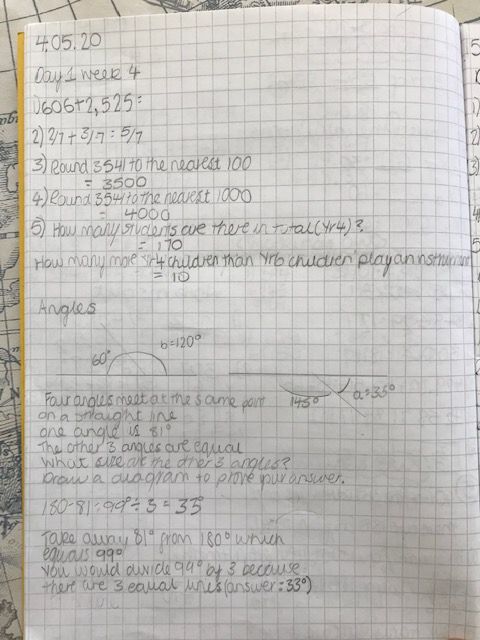 4.05.20
Day 1 week 4
1) 606+2,525=
2) 2/7 + 3/7 = 5/7
3) Round 3541 to the nearest 100
= 3500
4) Round 3541 to the nearest 1000
= 4000
5) How many students are there in total (Yr4)?
= 170
How many more Yr4 children than Yr6 children play an instrument
= 10
Angles
60° b=120°
145° a=35°
Four angles meet at the same point
on a straight line
one angle is 81°
The other 3 angles are equal
What size are the other 3 angles?
Draw a diagram to prove your answer.
180-81=99°÷3=33°
Take away 81° from 180° which
equals 99°
You would divide 99° by 3 because
there are 3 equal lines (answer=33°)
5
1)
2)
3)
4
5